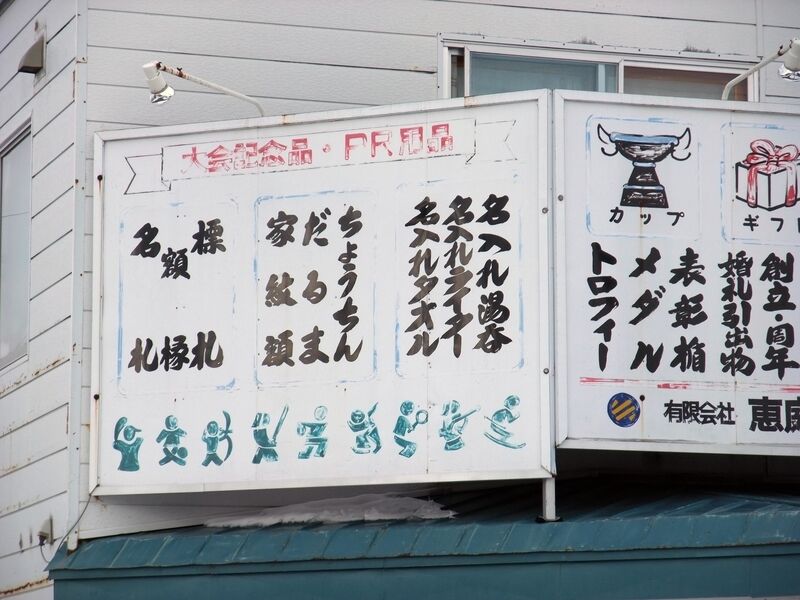 大会記念品・PR用品
標札
額縁
名札
ちょうちん
だるま
家紋額
名入れ湯呑
名入れライター
名入れタオル
カップ
ギフト
創立・周年
婚礼引出物
表彰楯
メダル
トロフィー
有限会社 恵庭